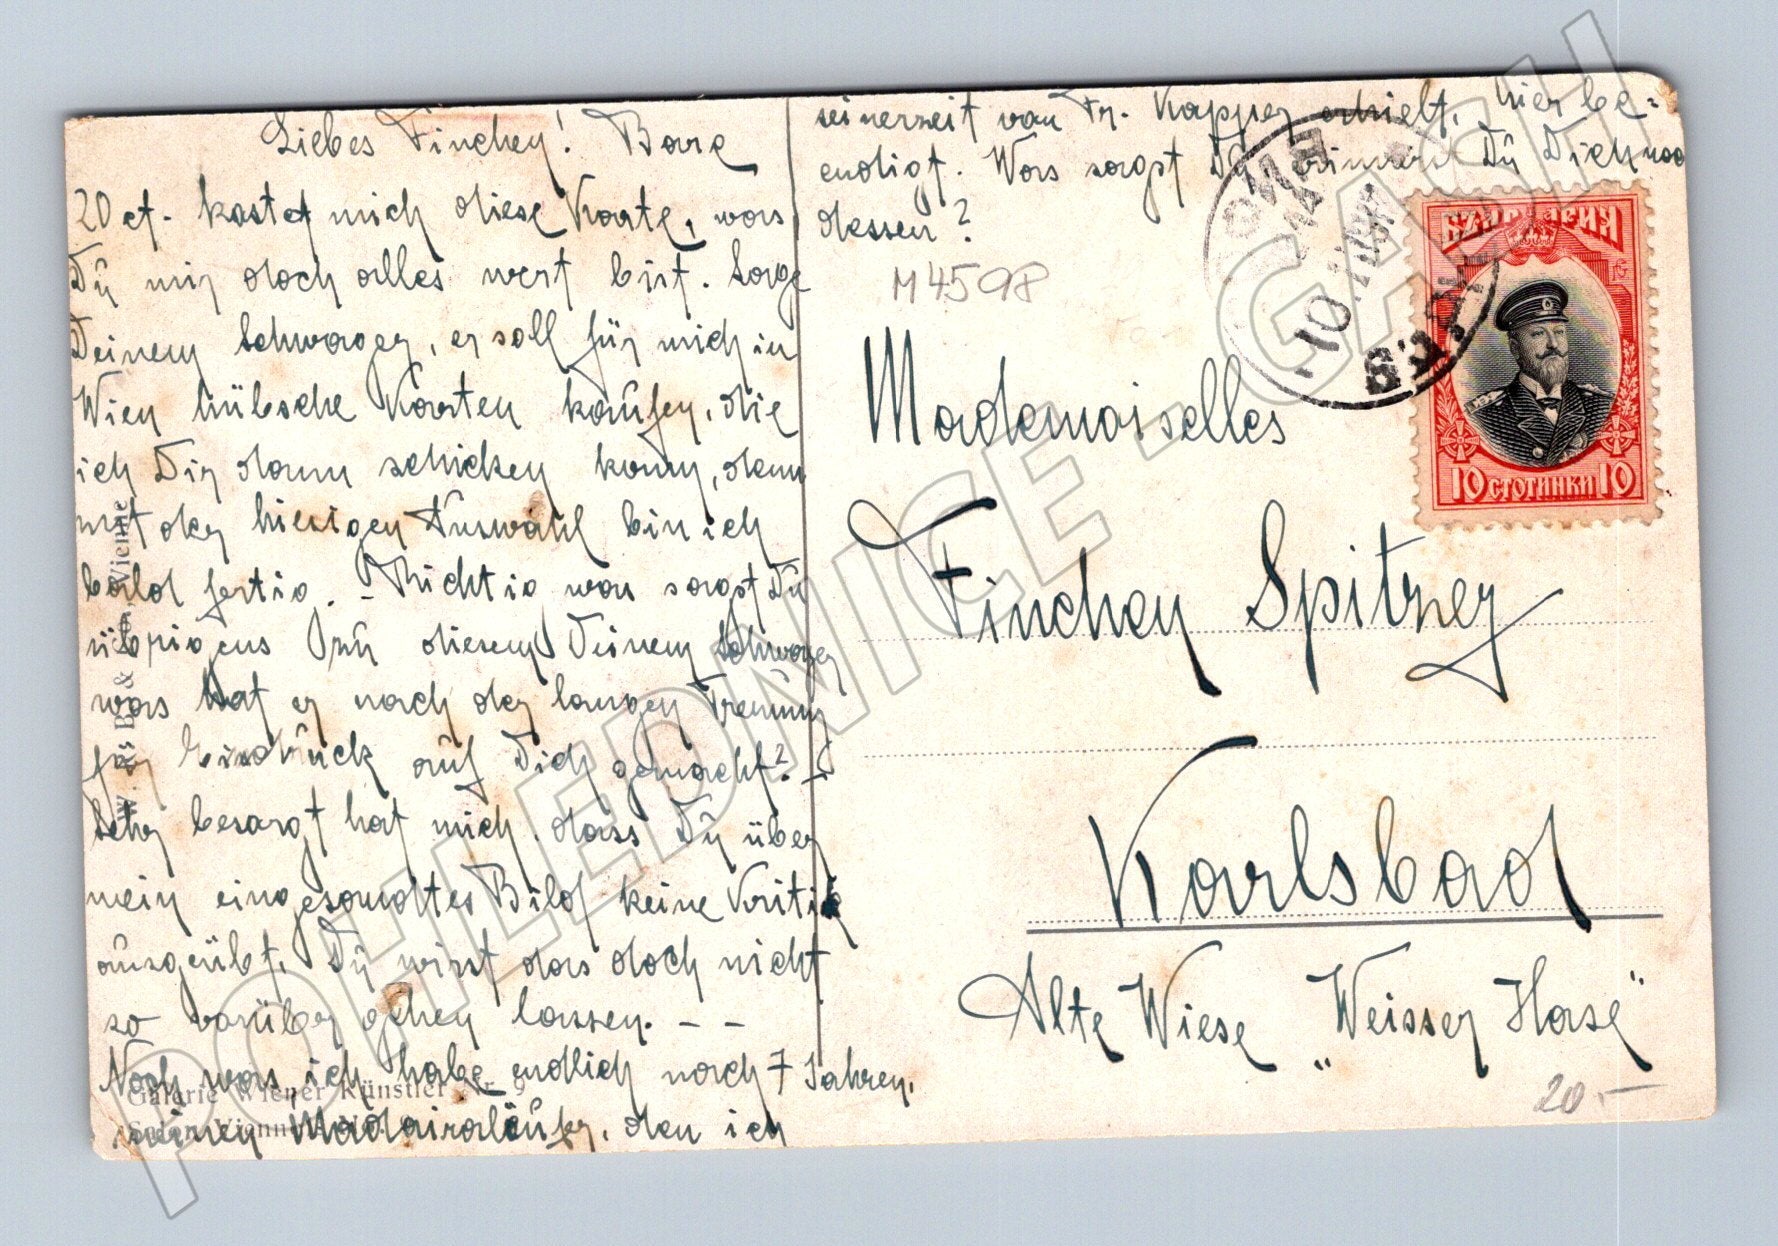 Liebes Finchen! Bare
20 ct. kostet mich diese Karte, was
Du mir doch alles wert bist. Sage
Deinem Schwager, er soll für mich in
Wien hübsche Karten kaufen, die
ich Dir dann schicken kann, denn
mit der hiesigen Auswahl bin ich
bald fertig. – Richtig was sagst Du
übrigens zu diesem Deinem Schwager
was hat er nach der langen Trennung
für Eindruck auf Dich gemacht? –
Sehr besorgt hat mich, dass Du über
mein eingesandtes Bild keine Kritik
ausgeübt. Du wirst das doch nicht
so vorüber gehen lassen. – –
Noch was, ich habe endlich nach 7 Jahren,
meinen Madairaläufer, den ich
seinerzeit von Fr. Kapper erhielt, hier be=
endigt. Was sagst Du, erinnerst Du Dich noch
dessen?
M 4598
Mademoiselles
Finchen Spitzer
Karlsbad
Alte Wiese „Weisser Hase"
20.–
БЪЛГАРИЯ
10 СТОТИНКИ 10
10
W. R. B. & Co., Vienne
Galerie Wiener Künstler Nr. 9
POHLEDNICE - GASH